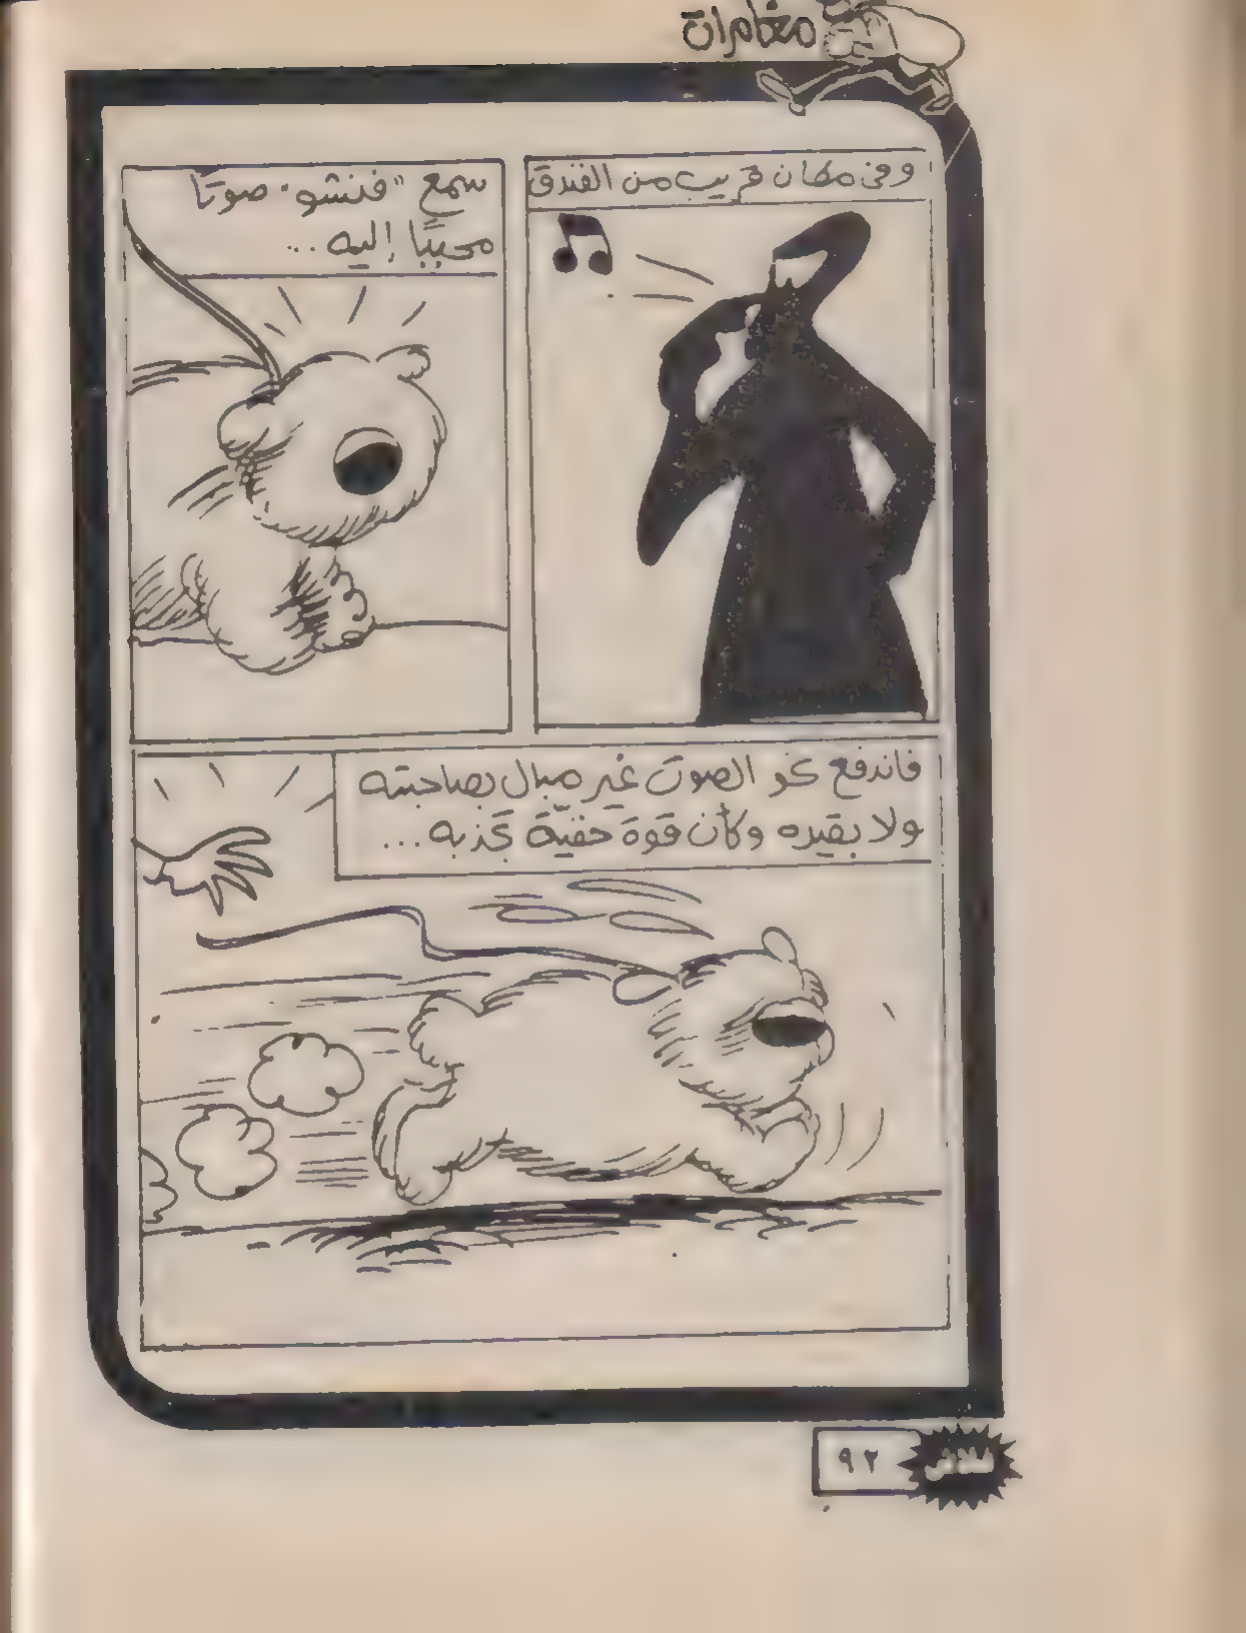 مغامرات
وفى مكان قريب من الفندق
سمع "فنشو" صوتًا
محببًا إليه...
فاندفع نحو الصوت غير مبال بصاحبته
ولا بقيده وكأن قوة خفيّة تجذبه...
٩٢
فلاش